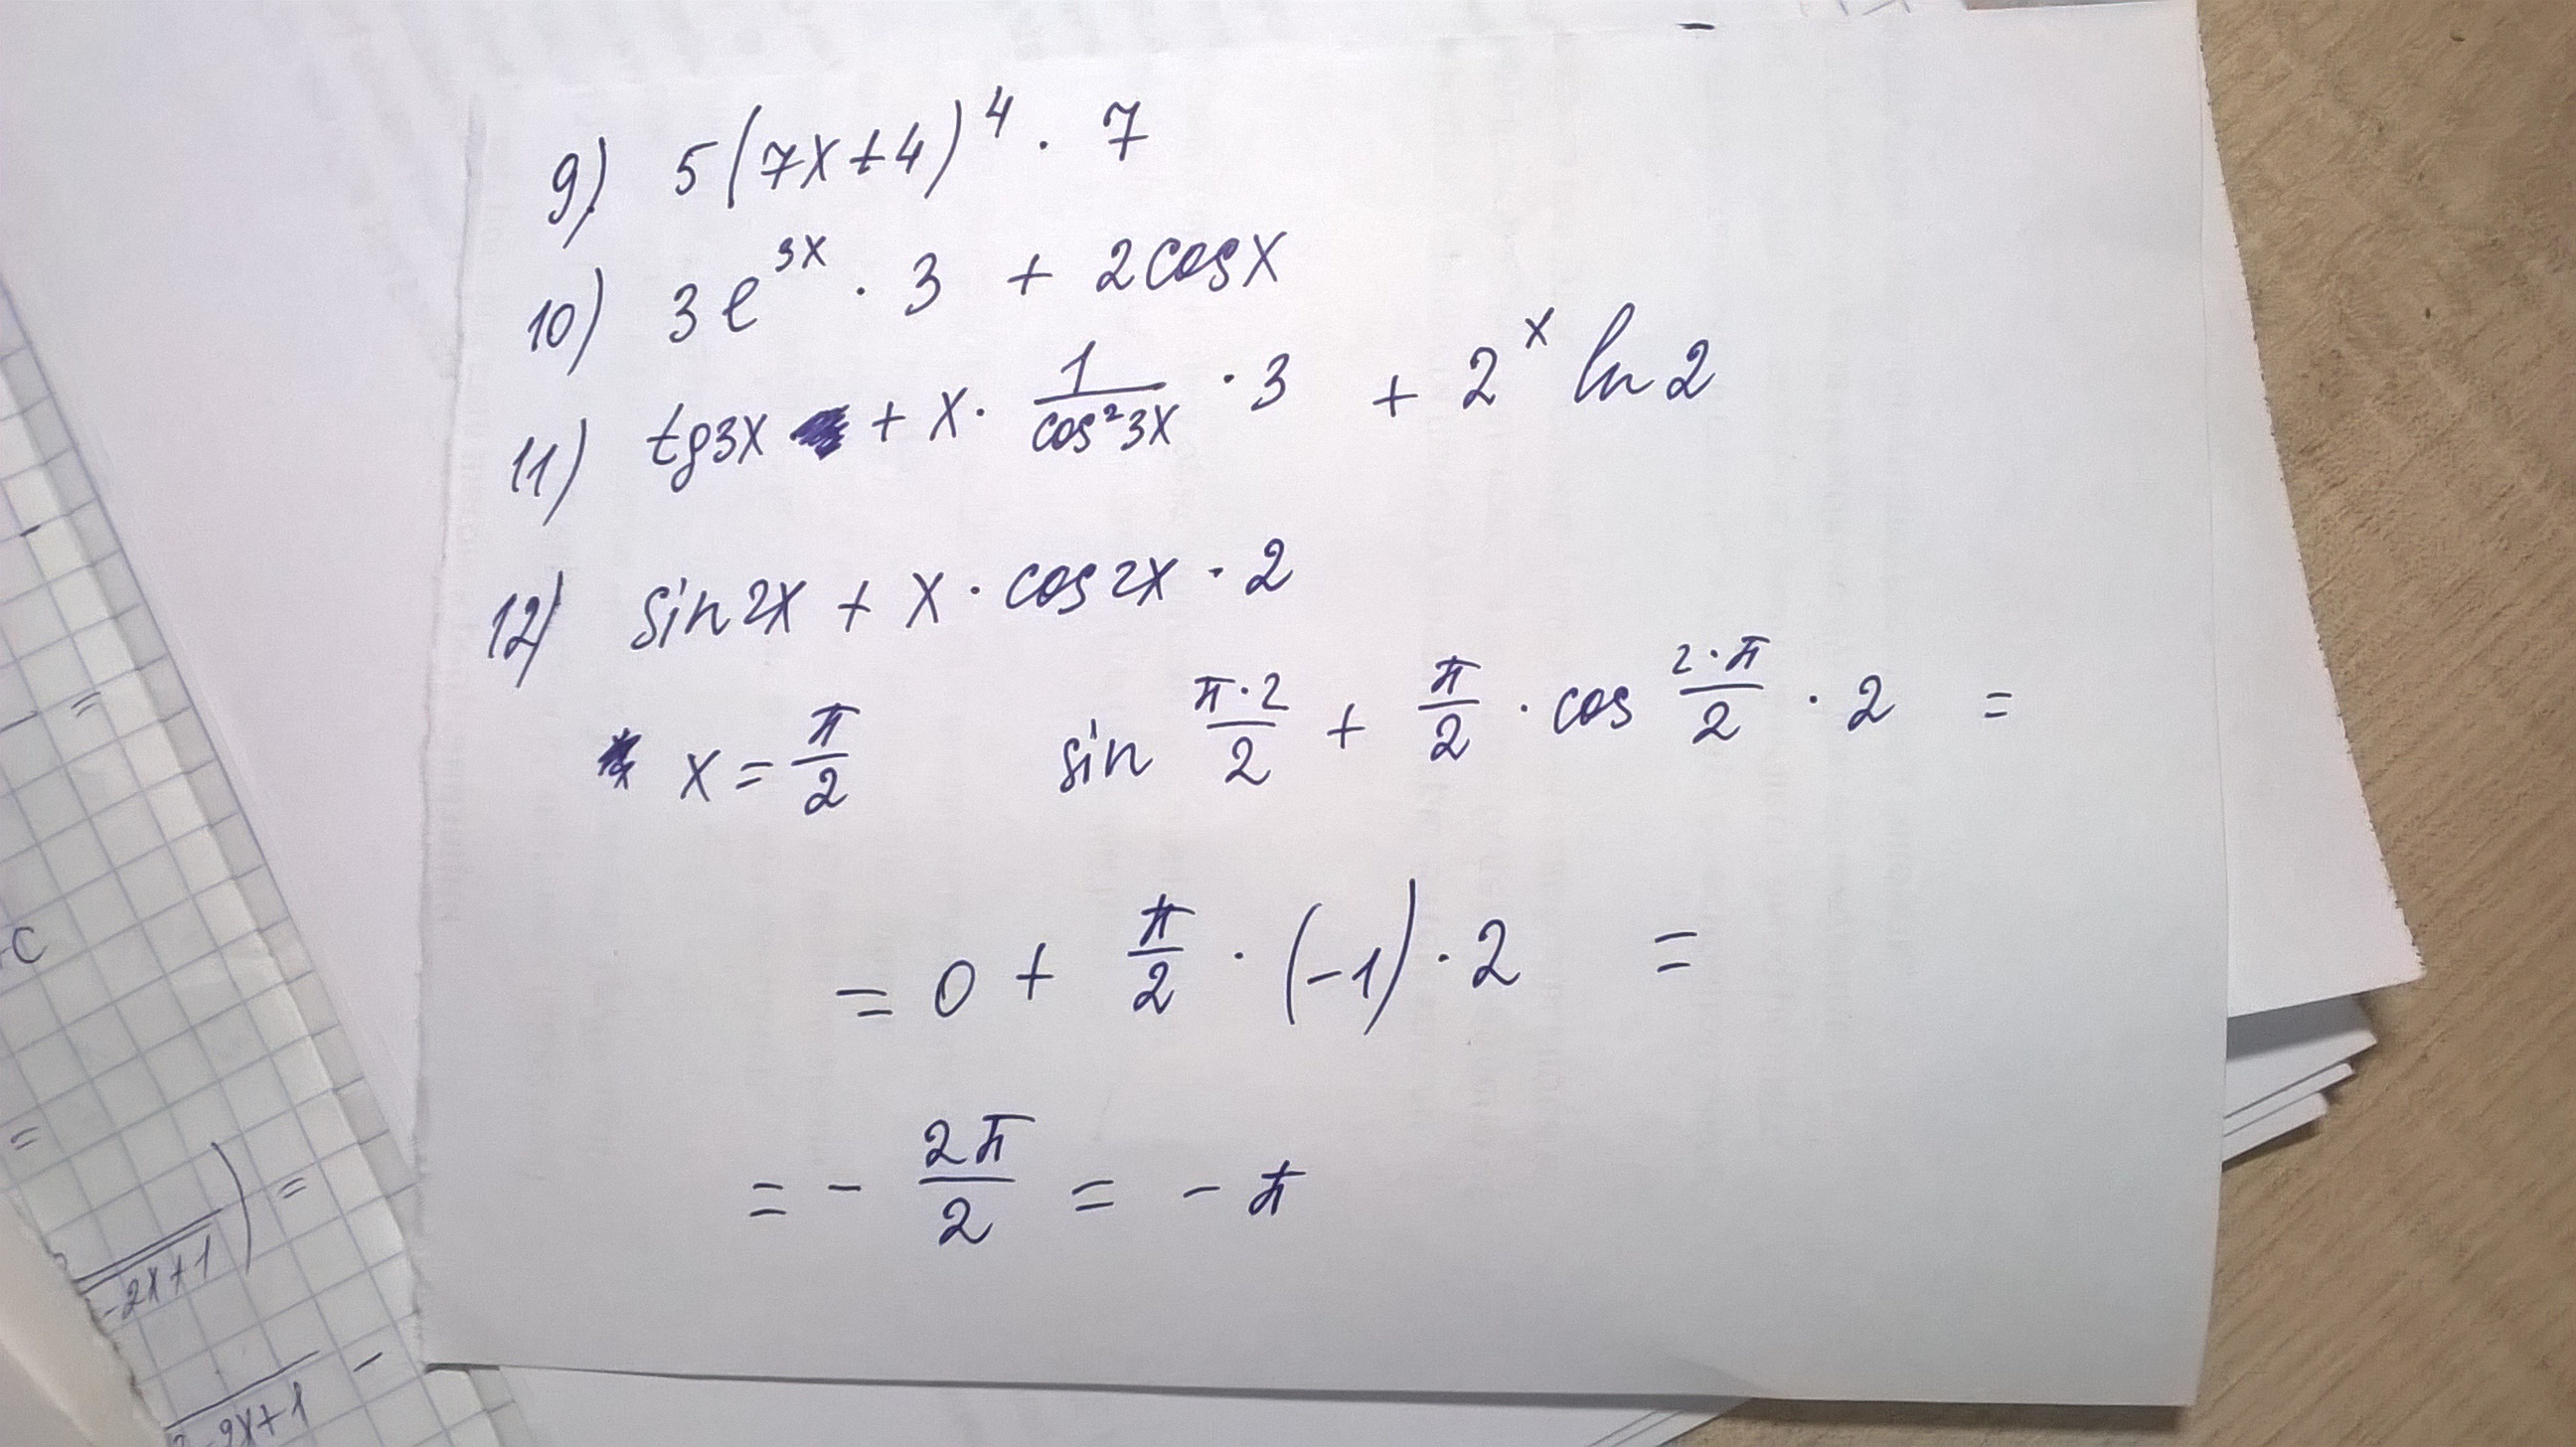 9) 5(7x+4)^4 · 7
10) 3e^{3x} · 3 + 2cosx
11) tg3x + x · \frac{1}{cos^2 3x} · 3 + 2^x ln2
12) sin2x + x · cos2x · 2
x = \frac{π}{2} sin \frac{π·2}{2} + \frac{π}{2} · cos \frac{2·π}{2} · 2 =
= 0 + \frac{π}{2} · (-1) · 2 =
= - \frac{2π}{2} = - π
=
C
=
) =
-2x+1
-
-2x+1